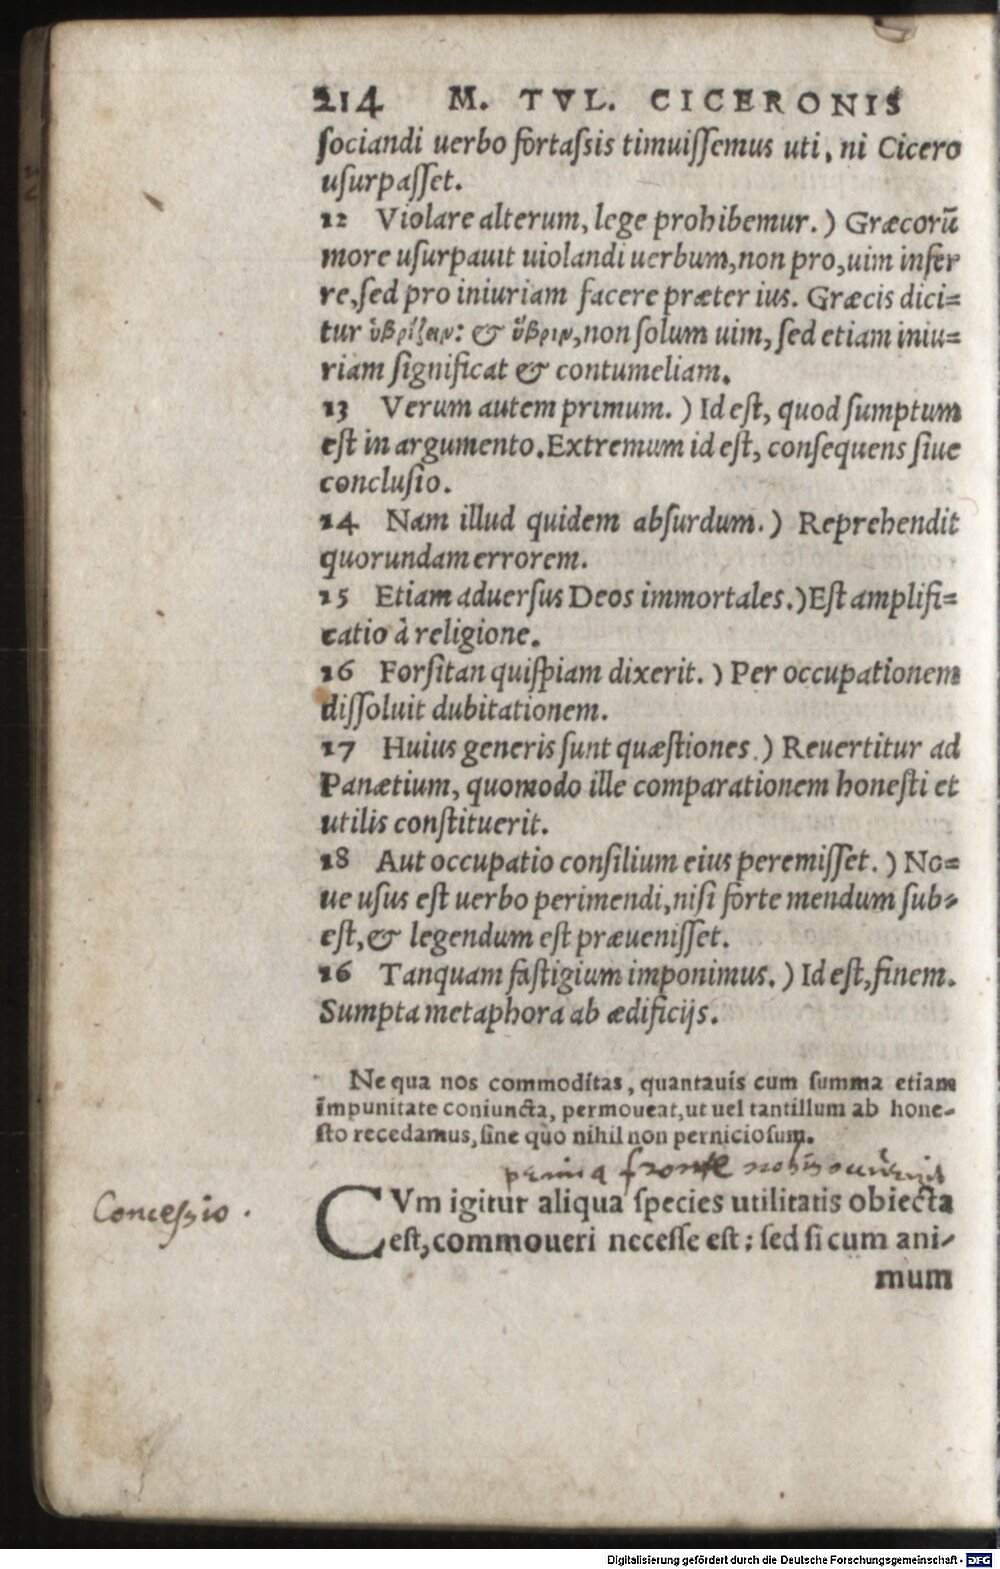 214 M. TVL. CICERONIS
ſociandi uerbo fortaſsis timuiſſemus uti, ni Cicero
uſurpaſſet.
12 Violare alterum, lege prohibemur.) Græcorū
more uſurpauit uiolandi uerbum, non pro, uim infer
re, ſed pro iniuriam facere præter ius. Græcis dici=
tur ὑβρίζειν: & ὕβριν, non ſolum uim, ſed etiam iniu=
riam ſignificat & contumeliam.
13 Verum autem primum.) Id eſt, quod ſumptum
eſt in argumento. Extremum id eſt, conſequens ſiue
concluſio.
14 Nam illud quidem abſurdum.) Reprehendit
quorundam errorem.
15 Etiam aduerſus Deos immortales.) Eſt amplifi=
catio à religione.
16 Forſitan quiſpiam dixerit.) Per occupationem
diſſoluit dubitationem.
17 Huius generis ſunt quæſtiones.) Reuertitur ad
Panætium, quomodo ille comparationem honeſti et
utilis conſtituerit.
18 Aut occupatio conſilium eius peremiſſet.) No=
ue uſus eſt uerbo perimendi, niſi forte mendum ſub=
eſt, & legendum eſt præueniſſet.
16 Tanquam faſtigium imponimus.) Id eſt, finem.
Sumpta metaphora ab ædificijs.
Ne qua nos commoditas, quantauis cum ſumma etiam
impunitate coniuncta, permoueat, ut uel tantillum ab hone-
ſto recedamus, ſine quo nihil non pernicioſum.
prima fronte nobis
Conceſzio.
CVm igitur aliqua ſpecies utilitatis obiecta
eſt, commoueri neceſſe eſt: ſed ſi cum ani-
mum
Digitalisierung gefördert durch die Deutsche Forschungsgemeinschaft - DFG